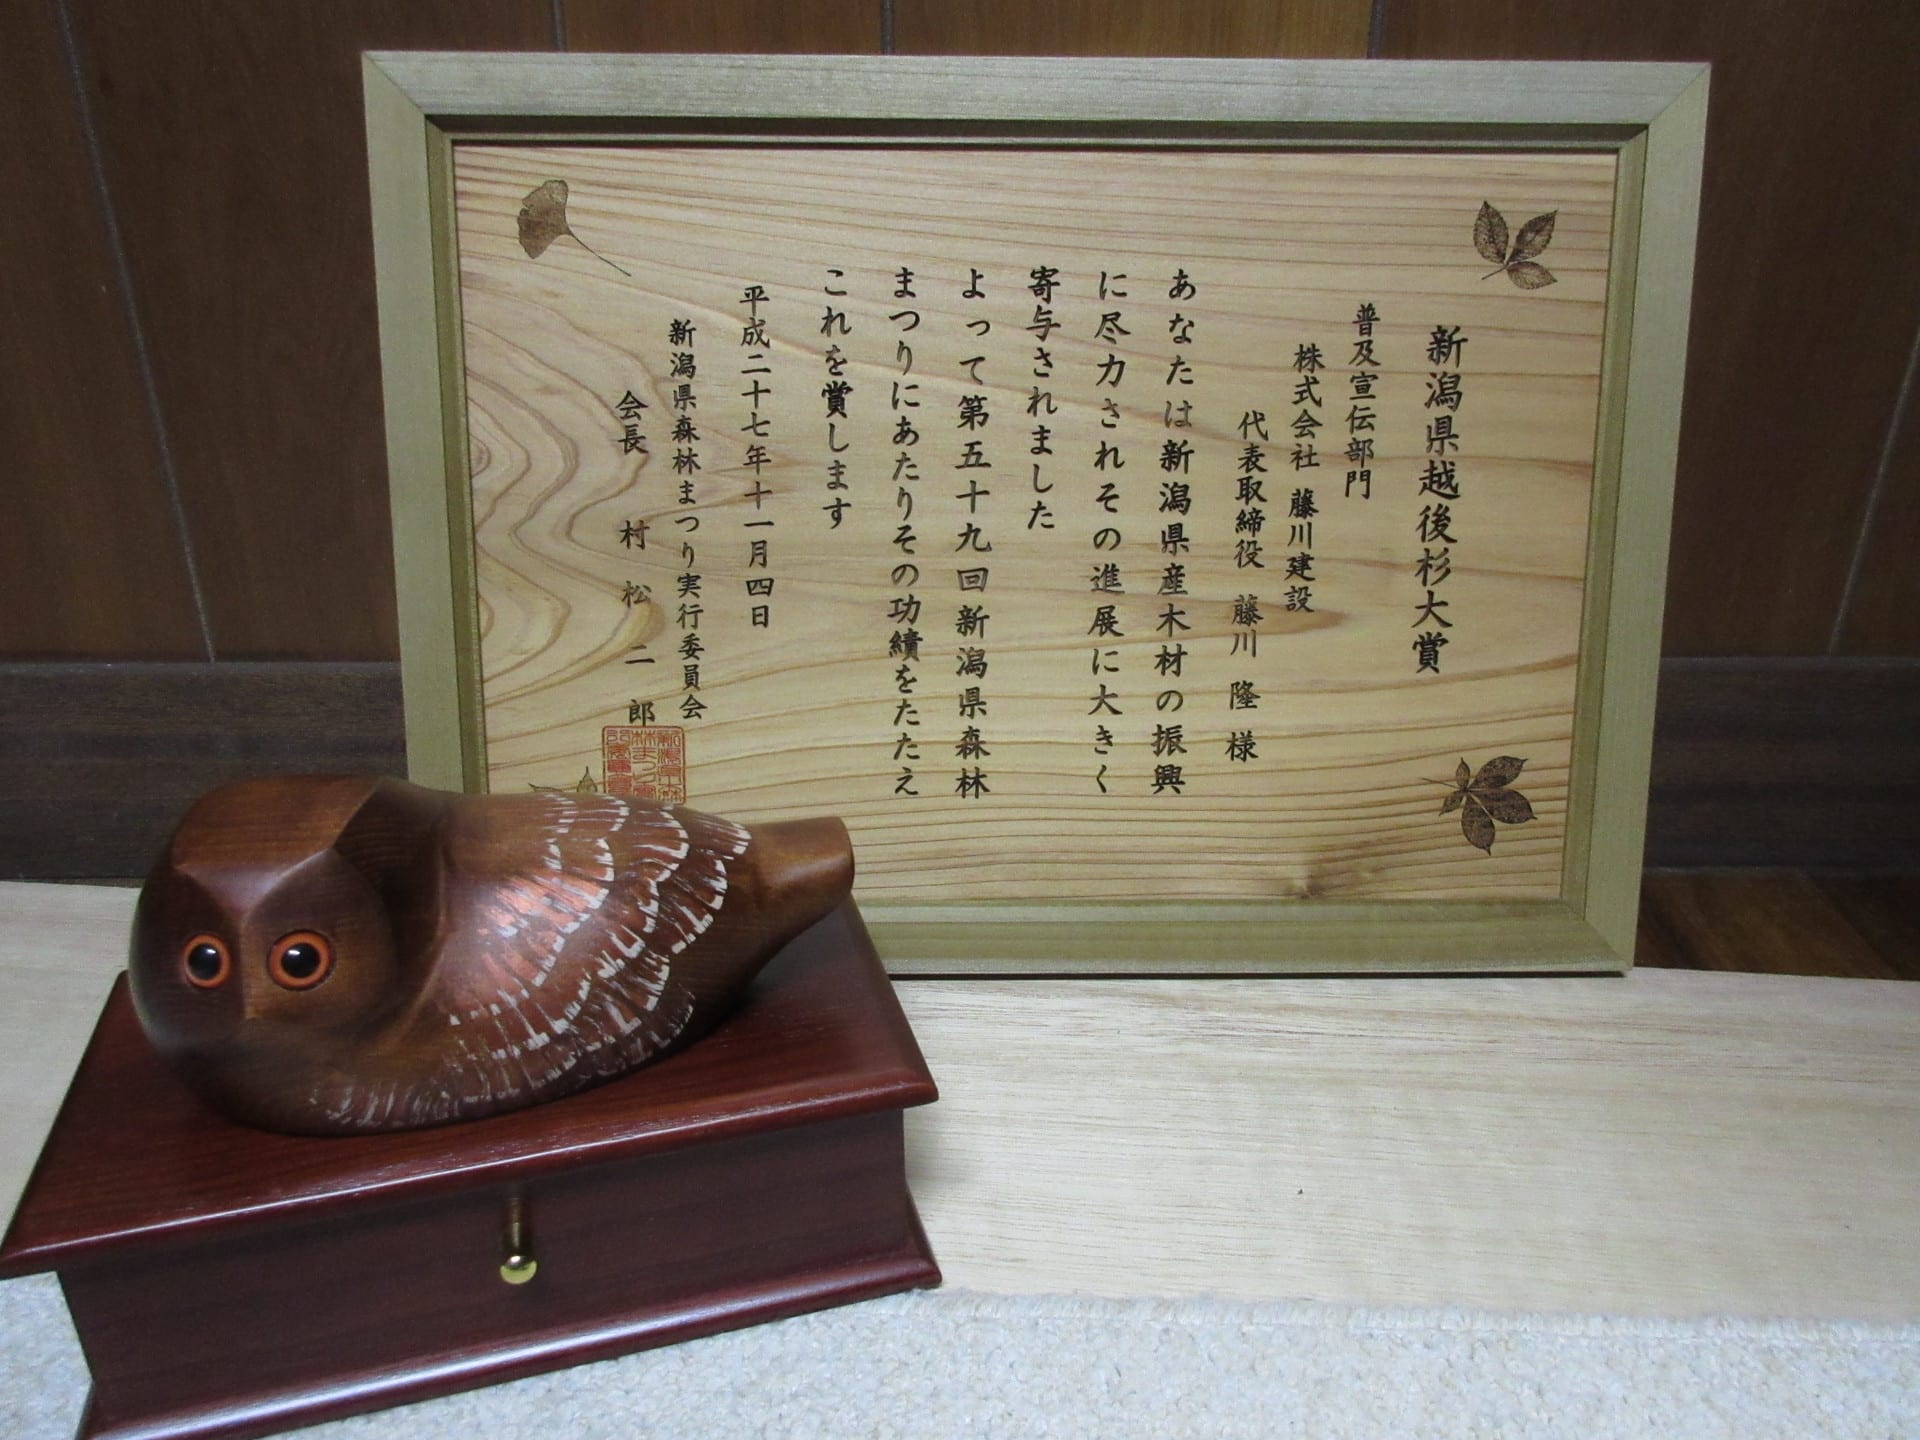 新潟県越後杉大賞
普及宣伝部門
株式会社 藤川建設
代表取締役 藤川 隆 様
あなたは新潟県産木材の振興
に尽力されその進展に大きく
寄与されました
よって第五十九回新潟県森林
まつりにあたりその功績をたたえ
これを賞します
平成二十七年十一月四日
新潟県森林まつり実行委員会
会長 村松二郎